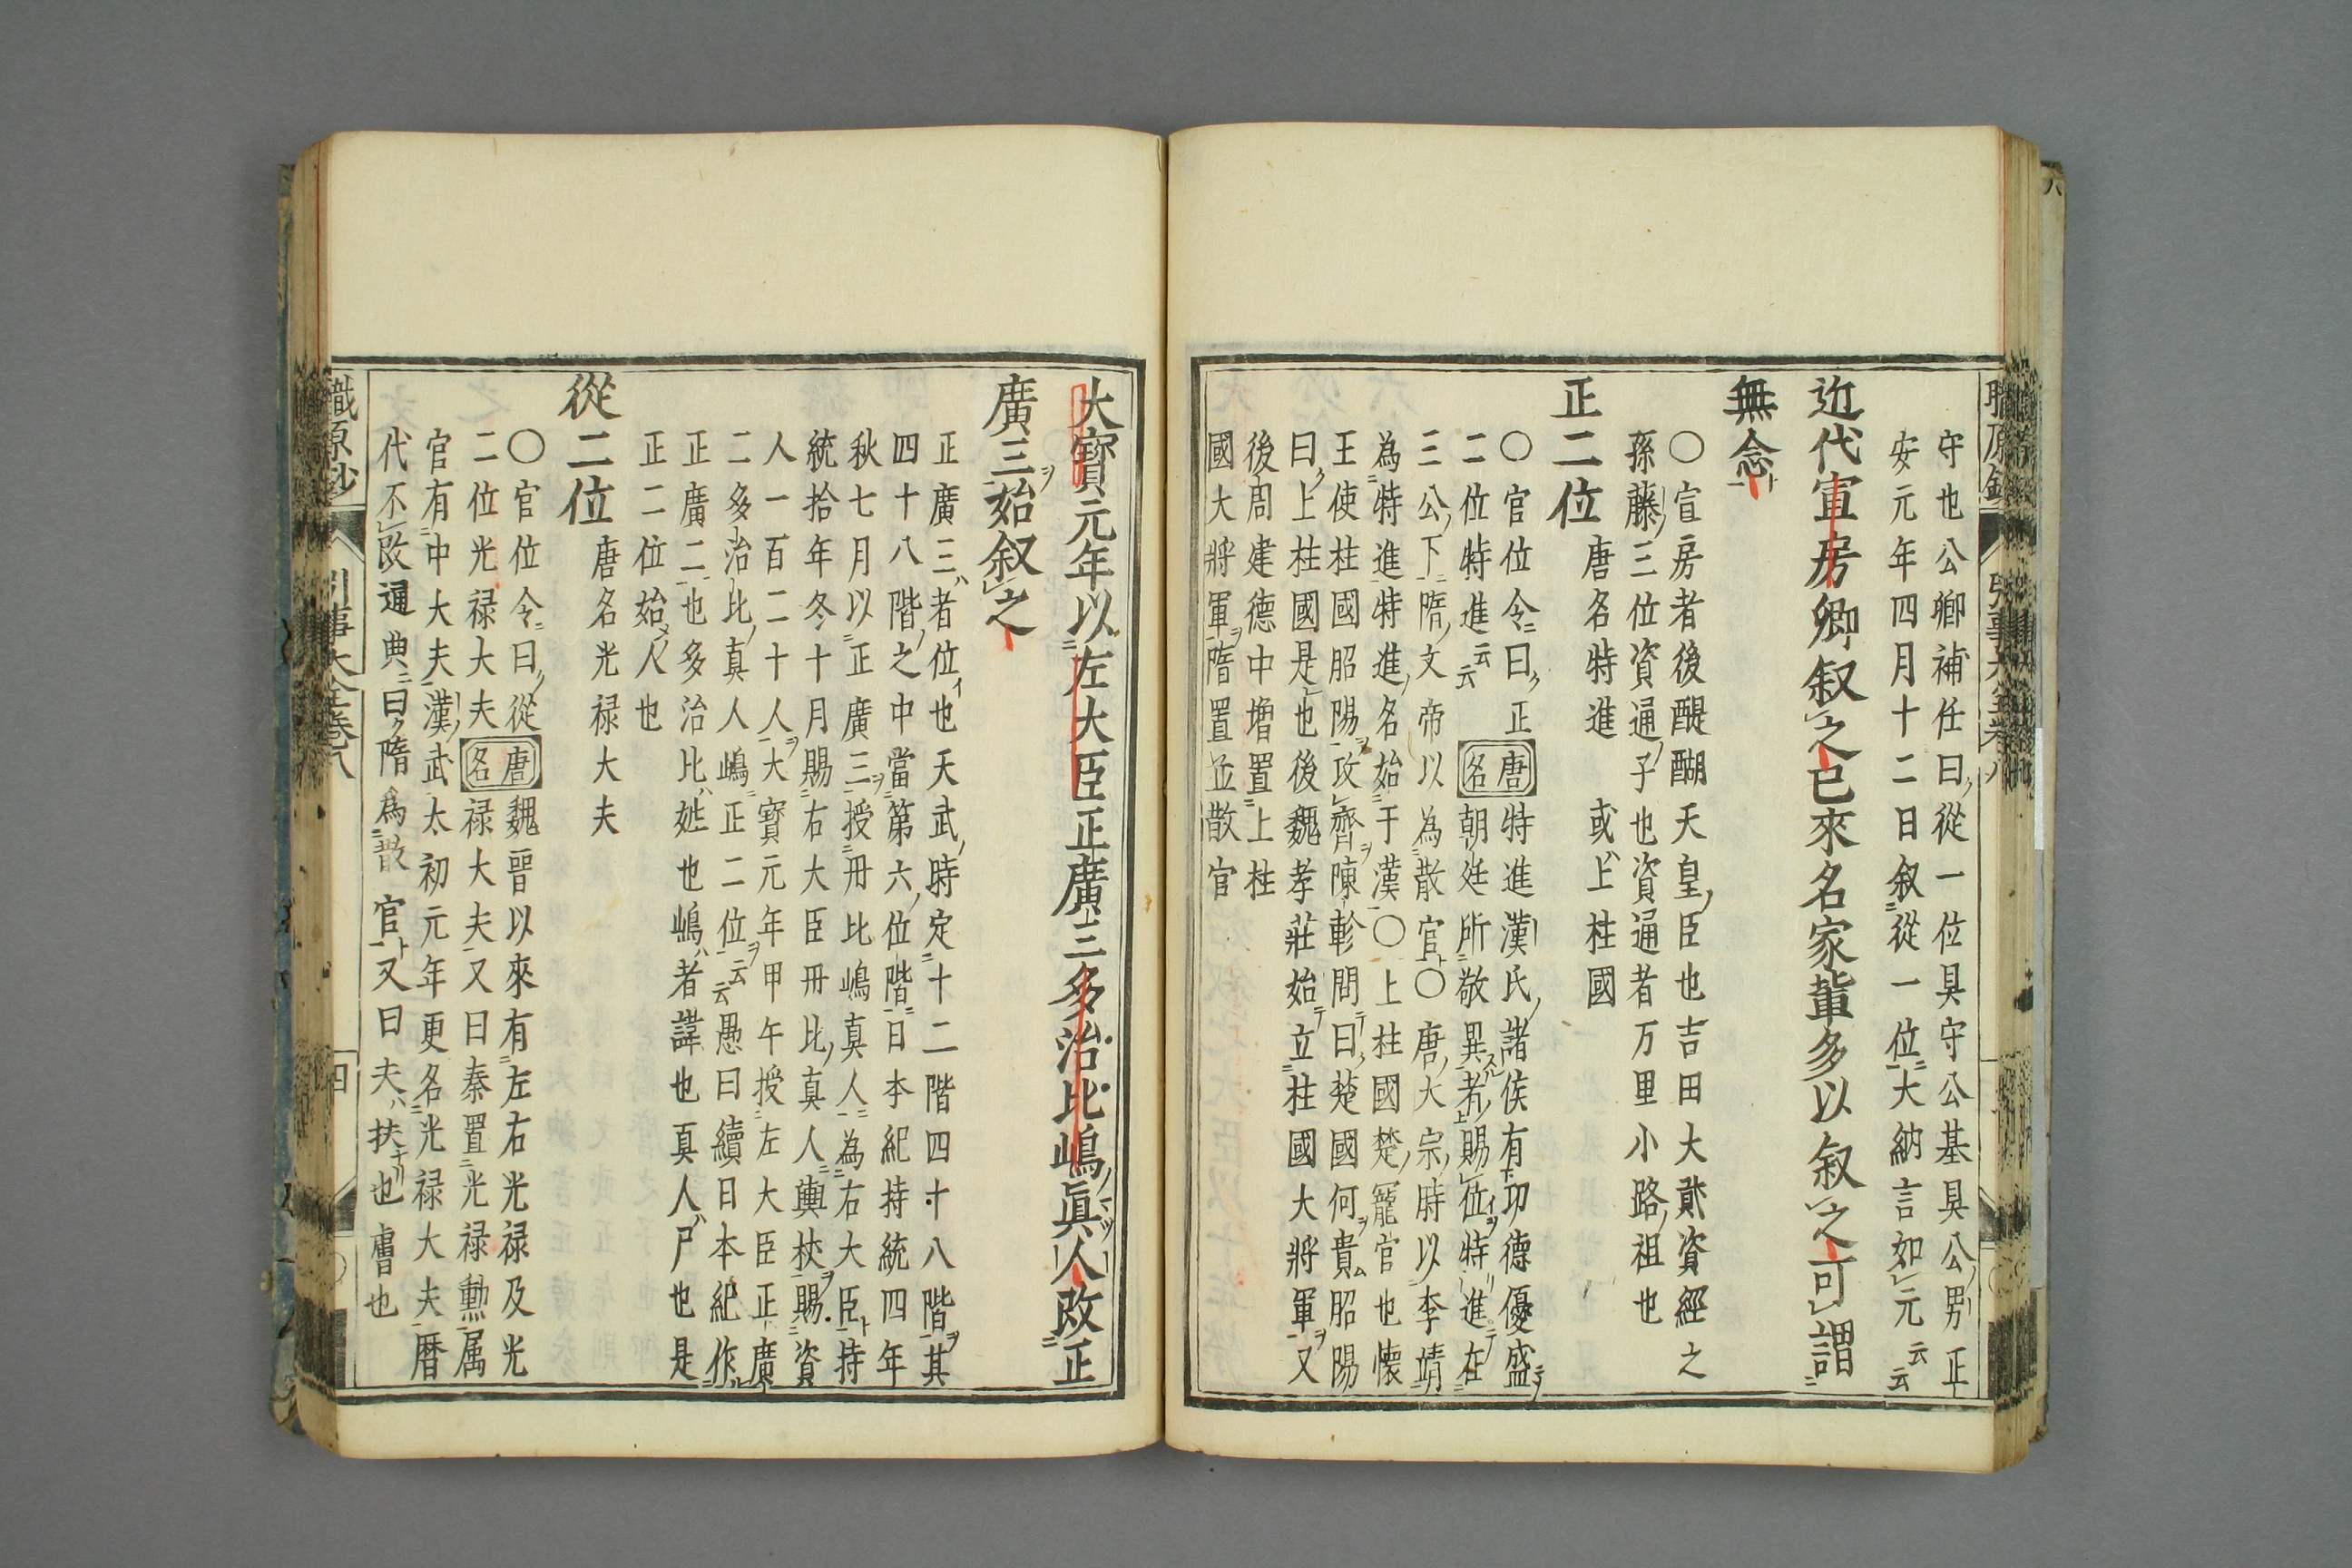 守也公卿補任曰從一位具守公基具公男正
安元年四月十二日叙從一位大納言如元云云
近代宣房卿叙之已來名家輩多以叙之可謂
無念
〇宣房者後醍醐天皇臣也吉田大貳資經之
孫藤三位資通子也資通者万里小路祖也
正二位 唐名特進 或上柱國
〇官位令曰正二位特進云云
唐名
特進漢氏諸侯有功德優盛
朝廷所敬異者賜位特進在
三公下隋文帝以為散官〇唐大宗時以李靖
為特進特進名始于漢〇上柱國楚寵官也懐
王使柱國昭陽攻齊陳軫問曰楚國何貴昭陽
曰上柱國是也後魏孝莊始立柱國大將軍又
後周建德中増置上柱
國大將軍隋置並散官
大寳元年以左大臣正廣三多治比嶋眞人改正
廣三始叙之
正廣三者位也天武時定十二階四十八階其
四十八階之中當第六位階日本紀持統四年
秋七月以正廣三授丹比嶋真人為右大臣持
統拾年冬十月賜右大臣丹比真人輿杖賜資
人一百二十人大寳元年甲午授左大臣正廣
二多治比真人嶋正二位云云愚曰續日本紀作
正廣二也多治比姓也嶋者諱也真人尸也是
正二位始人也
從二位 唐名光禄大夫
〇官位令曰從二位光禄大夫
唐名
魏晋以來有左右光禄及光
禄大夫又曰秦置光禄勲属
官有中大夫漢武太初元年更名光禄大夫暦
代不改通典曰隋為散官又曰夫扶也膚也
職原鈔
引事大全巻八
四